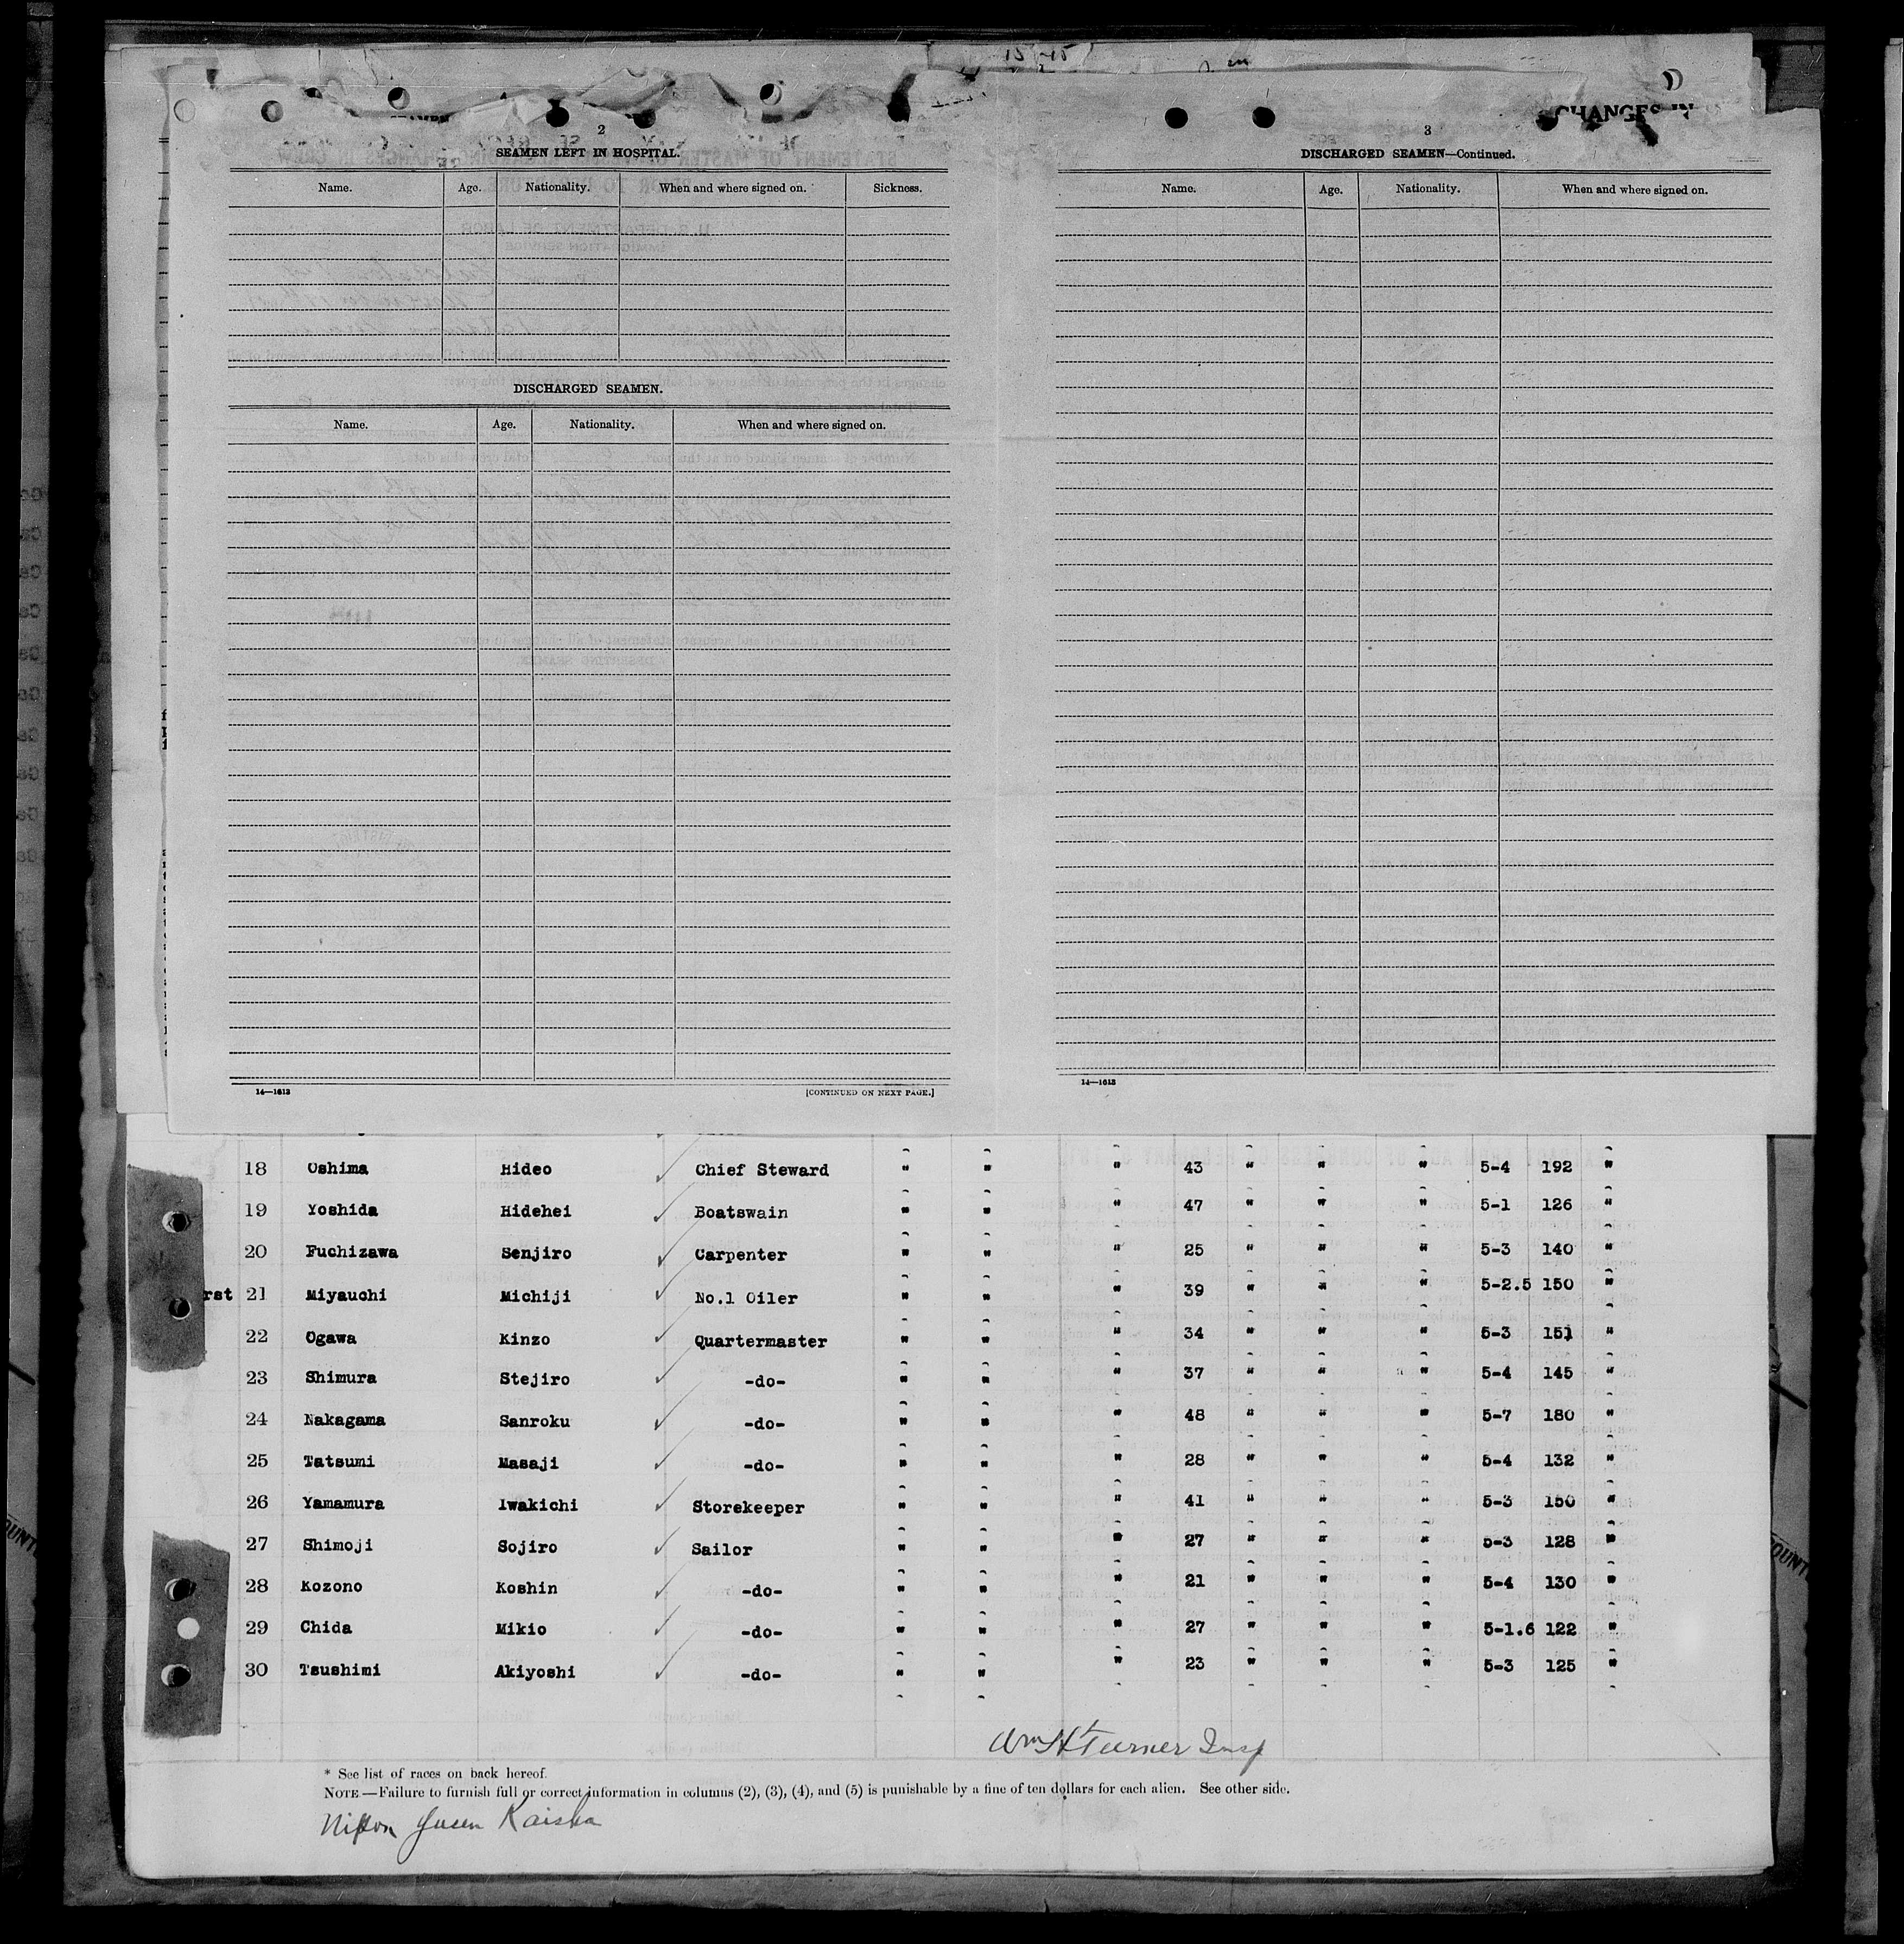 CHANGES IN
2
SEAMEN LEFT IN HOSPITAL.
Name. Age. Nationality. When and where signed on. Sickness.
DISCHARGED SEAMEN.
Name. Age. Nationality. When and where signed on.
14—1613 [CONTINUED ON NEXT PAGE.]
3
DISCHARGED SEAMEN—Continued.
Name. Age. Nationality. When and where signed on.
14—1613
18 Oshima Hideo ✓ Chief Steward " " " 43 " " " 5-4 192 "
19 Yoshida Hidehei ✓ Boatswain " " " 47 " " " 5-1 126 "
20 Fuchizawa Senjiro ✓ Carpenter " " " 25 " " " 5-3 140 "
rst 21 Miyauchi Michiji ✓ No.1 Oiler " " " 39 " " " 5-2.5 150 "
22 Ogawa Kinzo ✓ Quartermaster " " " 34 " " " 5-3 151 "
23 Shimura Stejiro ✓ -do- " " " 37 " " " 5-4 145 "
24 Nakagama Sanroku ✓ -do- " " " 48 " " " 5-7 180 "
25 Tatsumi Masaji ✓ -do- " " " 28 " " " 5-4 132 "
26 Yamamura Iwakichi ✓ Storekeeper " " " 41 " " " 5-3 150 "
27 Shimoji Sojiro ✓ Sailor " " " 27 " " " 5-3 128 "
28 Kozono Koshin ✓ -do- " " " 21 " " " 5-4 130 "
29 Chida Mikio ✓ -do- " " " 27 " " " 5-1.6 122 "
30 Tsushimi Akiyoshi ✓ -do- " " " 23 " " " 5-3 125 "
Wm H Turner Insp
* See list of races on back hereof.
NOTE—Failure to furnish full or correct information in columns (2), (3), (4), and (5) is punishable by a fine of ten dollars for each alien. See other side.
Nippon Yusen Kaisha